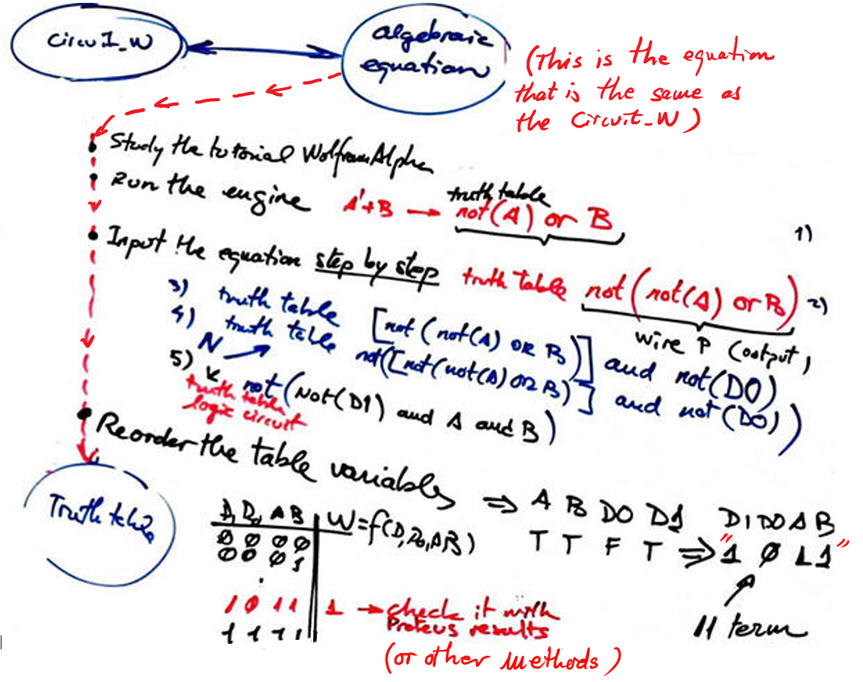 Circuit_W
algebraic
equation
(This is the equation
that is the same as
the Circuit_W)
• Study the tutorial WolframAlpha
• Run the engine A'+B → truth table not(A) or B 1)
• Input the equation step by step truth table not(not(A) or B) 2)
wire P (output)
3) truth table [not(not(A) OR B)] and not(D0)
4) truth table not([not(not(A) OR B)] and not(D0))
N
5) not(Not(D1) and A and B)
truth table
logic circuit
• Reorder the table variables ⇒ A B D0 D1 D1 D0 A B
T T F T ⇒ "1 0 1 1"
11 term
Truth table
D1 D0 A B W = f(D1, D0, A, B)
0 0 0 0
0 0 0 1
.
1 0 1 1 1 → check it with
Proteus results
(or other methods)
1 1 1 1